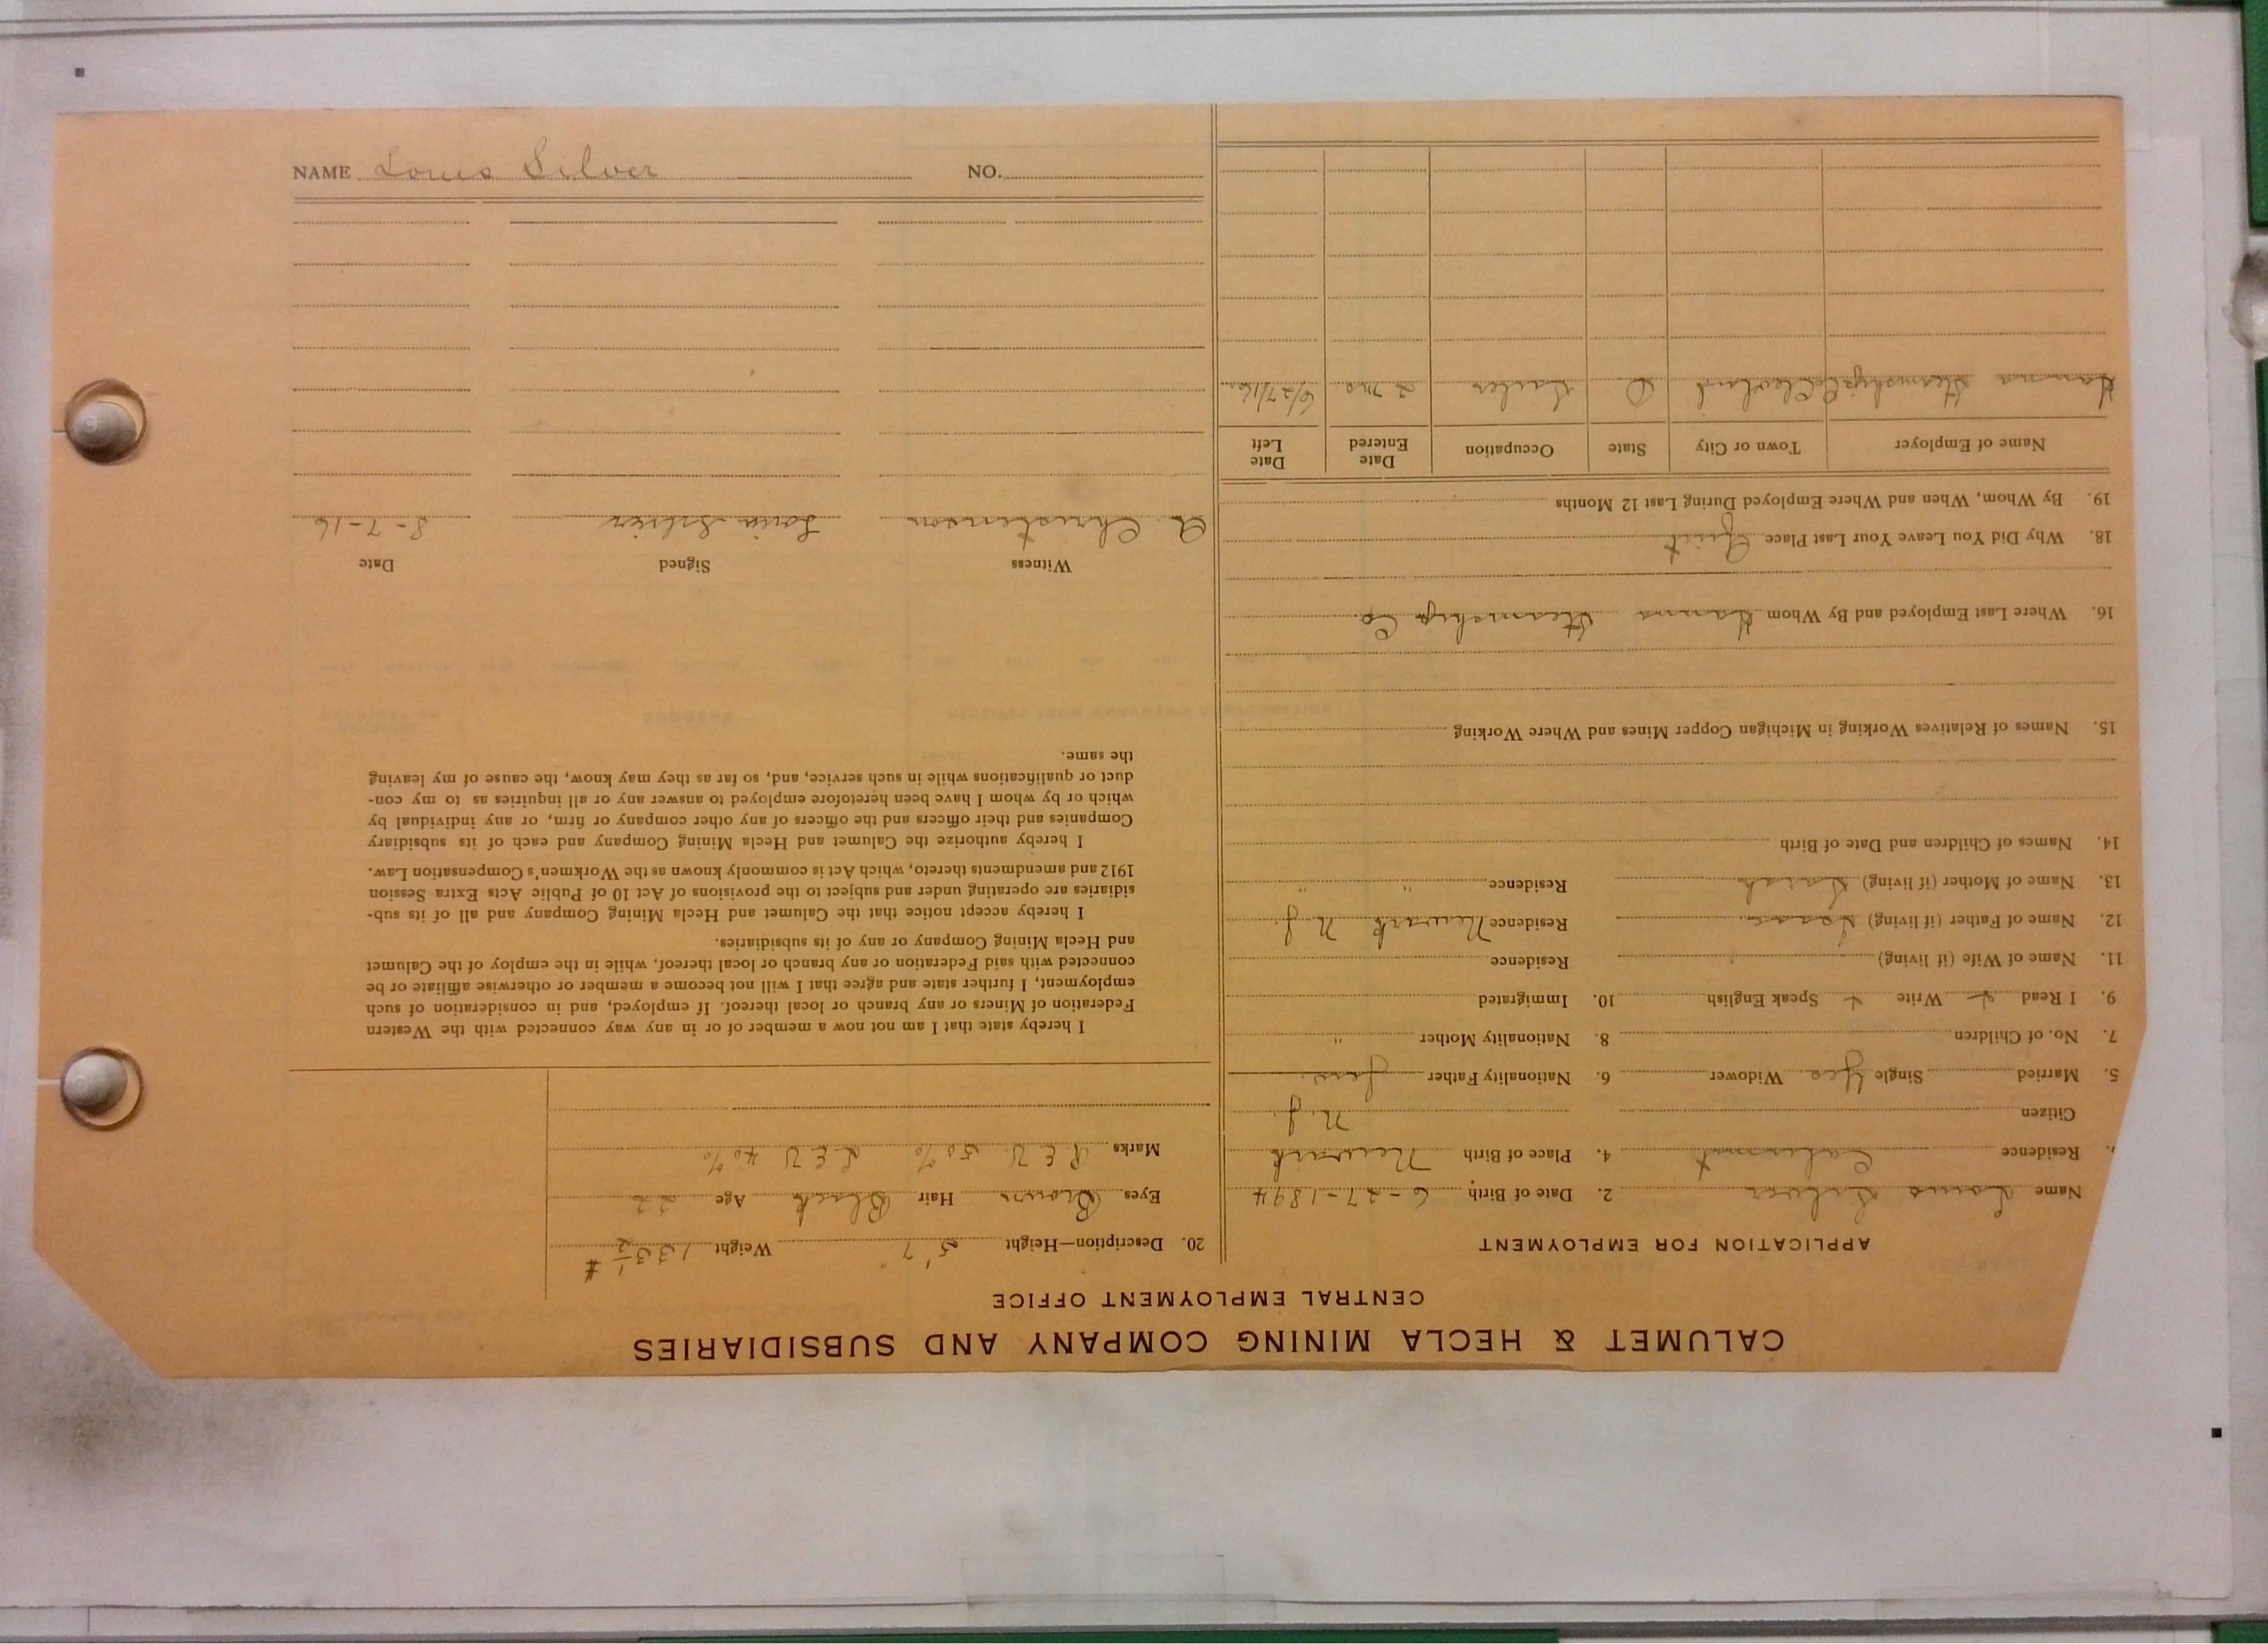 NAME Louis Silver NO.
CALUMET & HECLA MINING COMPANY AND SUBSIDIARIES
CENTRAL EMPLOYMENT OFFICE
APPLICATION FOR EMPLOYMENT
Name Louis Silver 2. Date of Birth 6-27-1894
Residence Calumet 4. Place of Birth Newark
Citizen N. J.
5. Married Single Yes Widower 6. Nationality Father Jew
7. No. of Children 8. Nationality Mother "
9. I Read Write Speak English 10. Immigrated
11. Name of Wife (if living) Residence
12. Name of Father (if living) Isaac Residence Newark N. J.
13. Name of Mother (if living) Sarah Residence " "
14. Names of Children and Date of Birth
15. Names of Relatives Working in Michigan Copper Mines and Where Working
16. Where Last Employed and By Whom Hanna Steamship Co
18. Why Did You Leave Your Last Place Quit
19. By Whom, When and Where Employed During Last 12 Months
Name of Employer Town or City State Occupation Date Entered Date Left
Hanna Steamship Co Cleveland O Sailor 2 mo 6/27/16
20. Description—Height 5' 7" Weight 133 1/2 #
Eyes Brown Hair Black Age 22
Marks R E V 50% L E V 40%
I hereby state that I am not now a member of or in any way connected with the Western
Federation of Miners or any branch or local thereof. If employed, and in consideration of such
employment, I further state and agree that I will not become a member or otherwise affiliate or be
connected with said Federation or any branch or local thereof, while in the employ of the Calumet
and Hecla Mining Company or any of its subsidiaries.
I hereby accept notice that the Calumet and Hecla Mining Company and all of its sub-
sidiaries are operating under and subject to the provisions of Act 10 of Public Acts Extra Session
1912 and amendments thereto, which Act is commonly known as the Workmen's Compensation Law.
I hereby authorize the Calumet and Hecla Mining Company and each of its subsidiary
Companies and their officers and the officers of any other company or firm, or any individual by
which or by whom I have been heretofore employed to answer any or all inquiries as to my con-
duct or qualifications while in such service, and, so far as they may know, the cause of my leaving
the same.
Witness Signed Date
A. Christinson Louis Silver 8-7-16